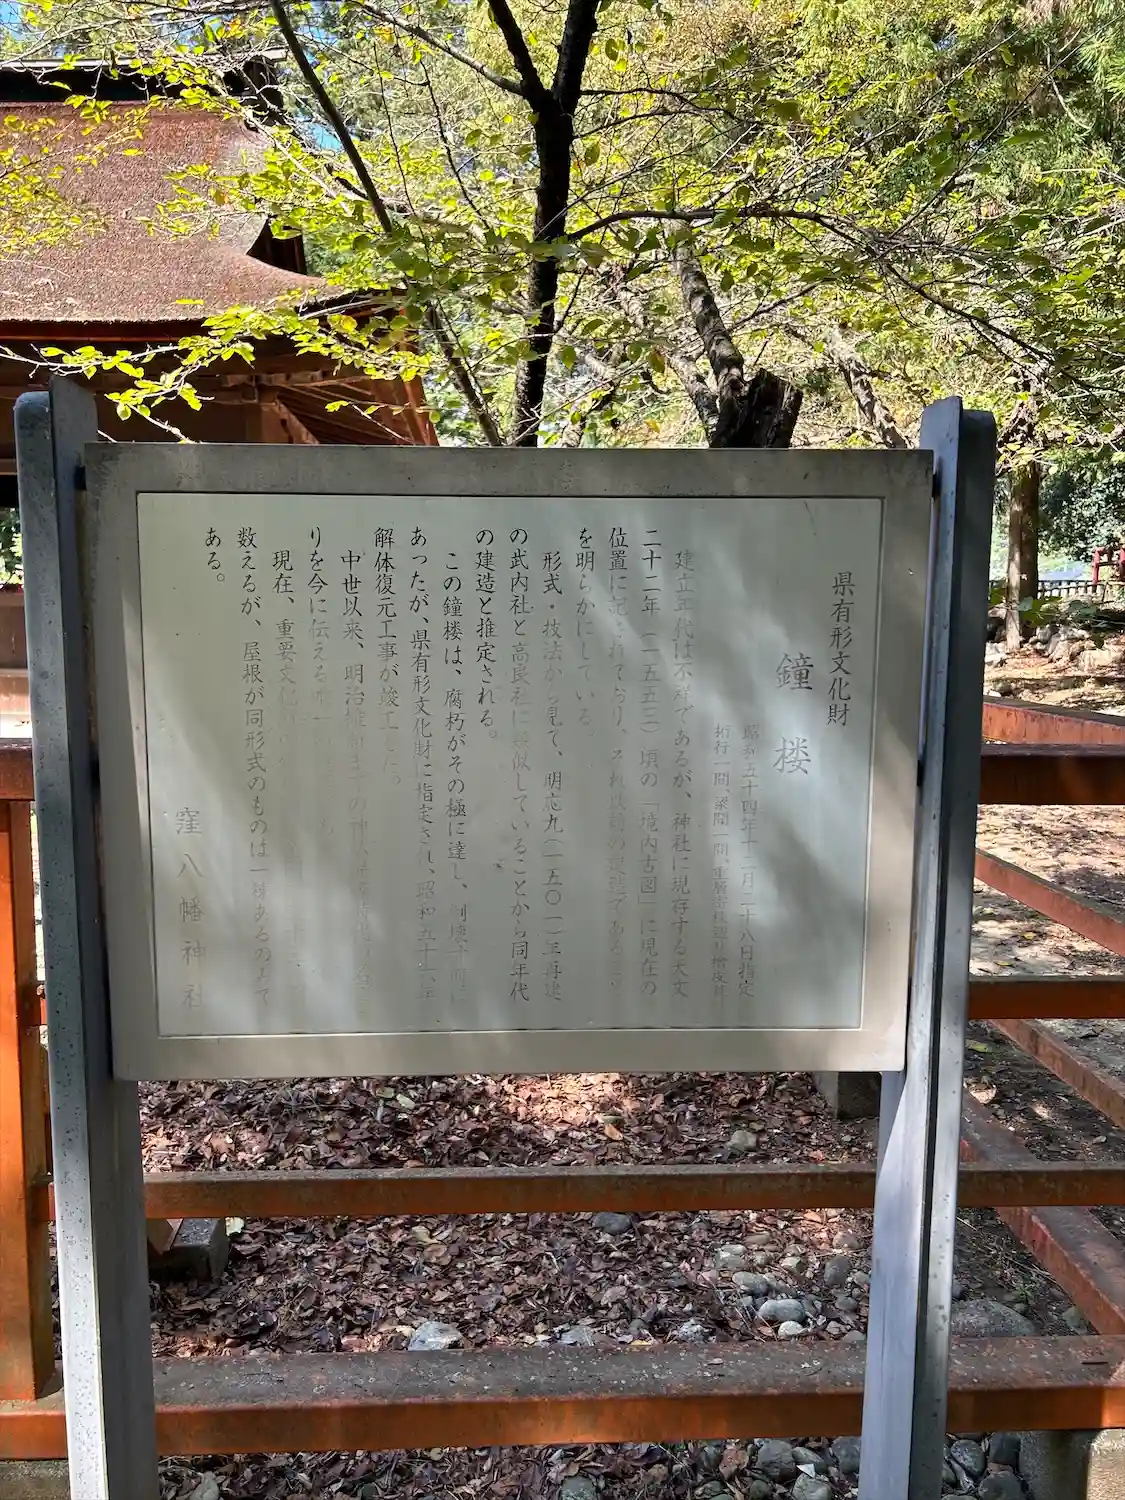 県有形文化財
鐘楼
昭和五十四年十二月二十八日指定
桁行一間、梁間一間、重層
建立年代は不祥であるが、神社に現存する天文
二十二年（一五五三）頃の「境内古図」に現在の
位置に記されており、それ以前の建造である
を明らかにしている。
形式・技法から見て、明応九（一五〇一）年再建
の武内社と高良社に類似していることから同年代
の建造と推定される。
この鐘楼は、腐朽がその極に達し、
あったが、県有形文化財に指定され、昭和五十一年
解体復元工事が竣工した。
中世以来、明治維新までの神仏
りを今に伝える
現在、重要文化財
数えるが、屋根が同形式のものは一棟あるのみで
ある。
窪八幡神社